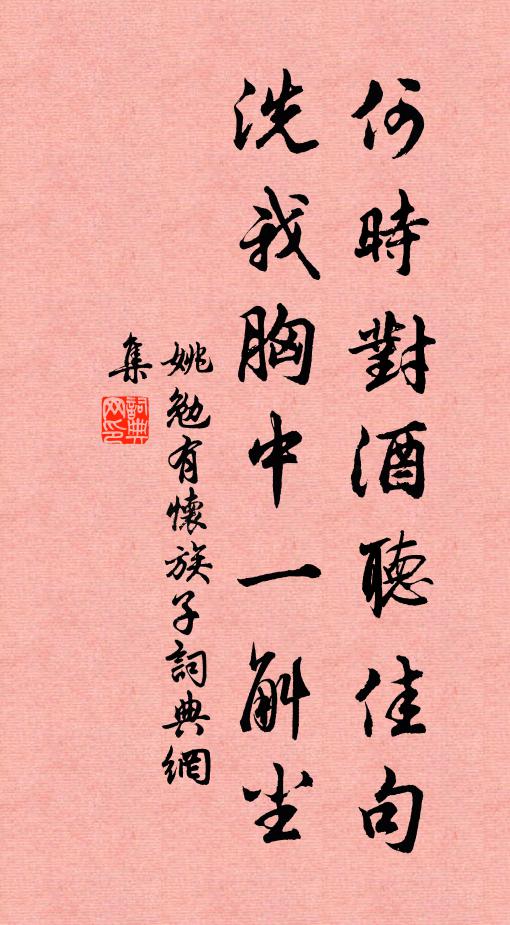 何時對酒聽佳句
洗我胸中一斛尘
姚勉有懷族子詞典網
集
詞典网印